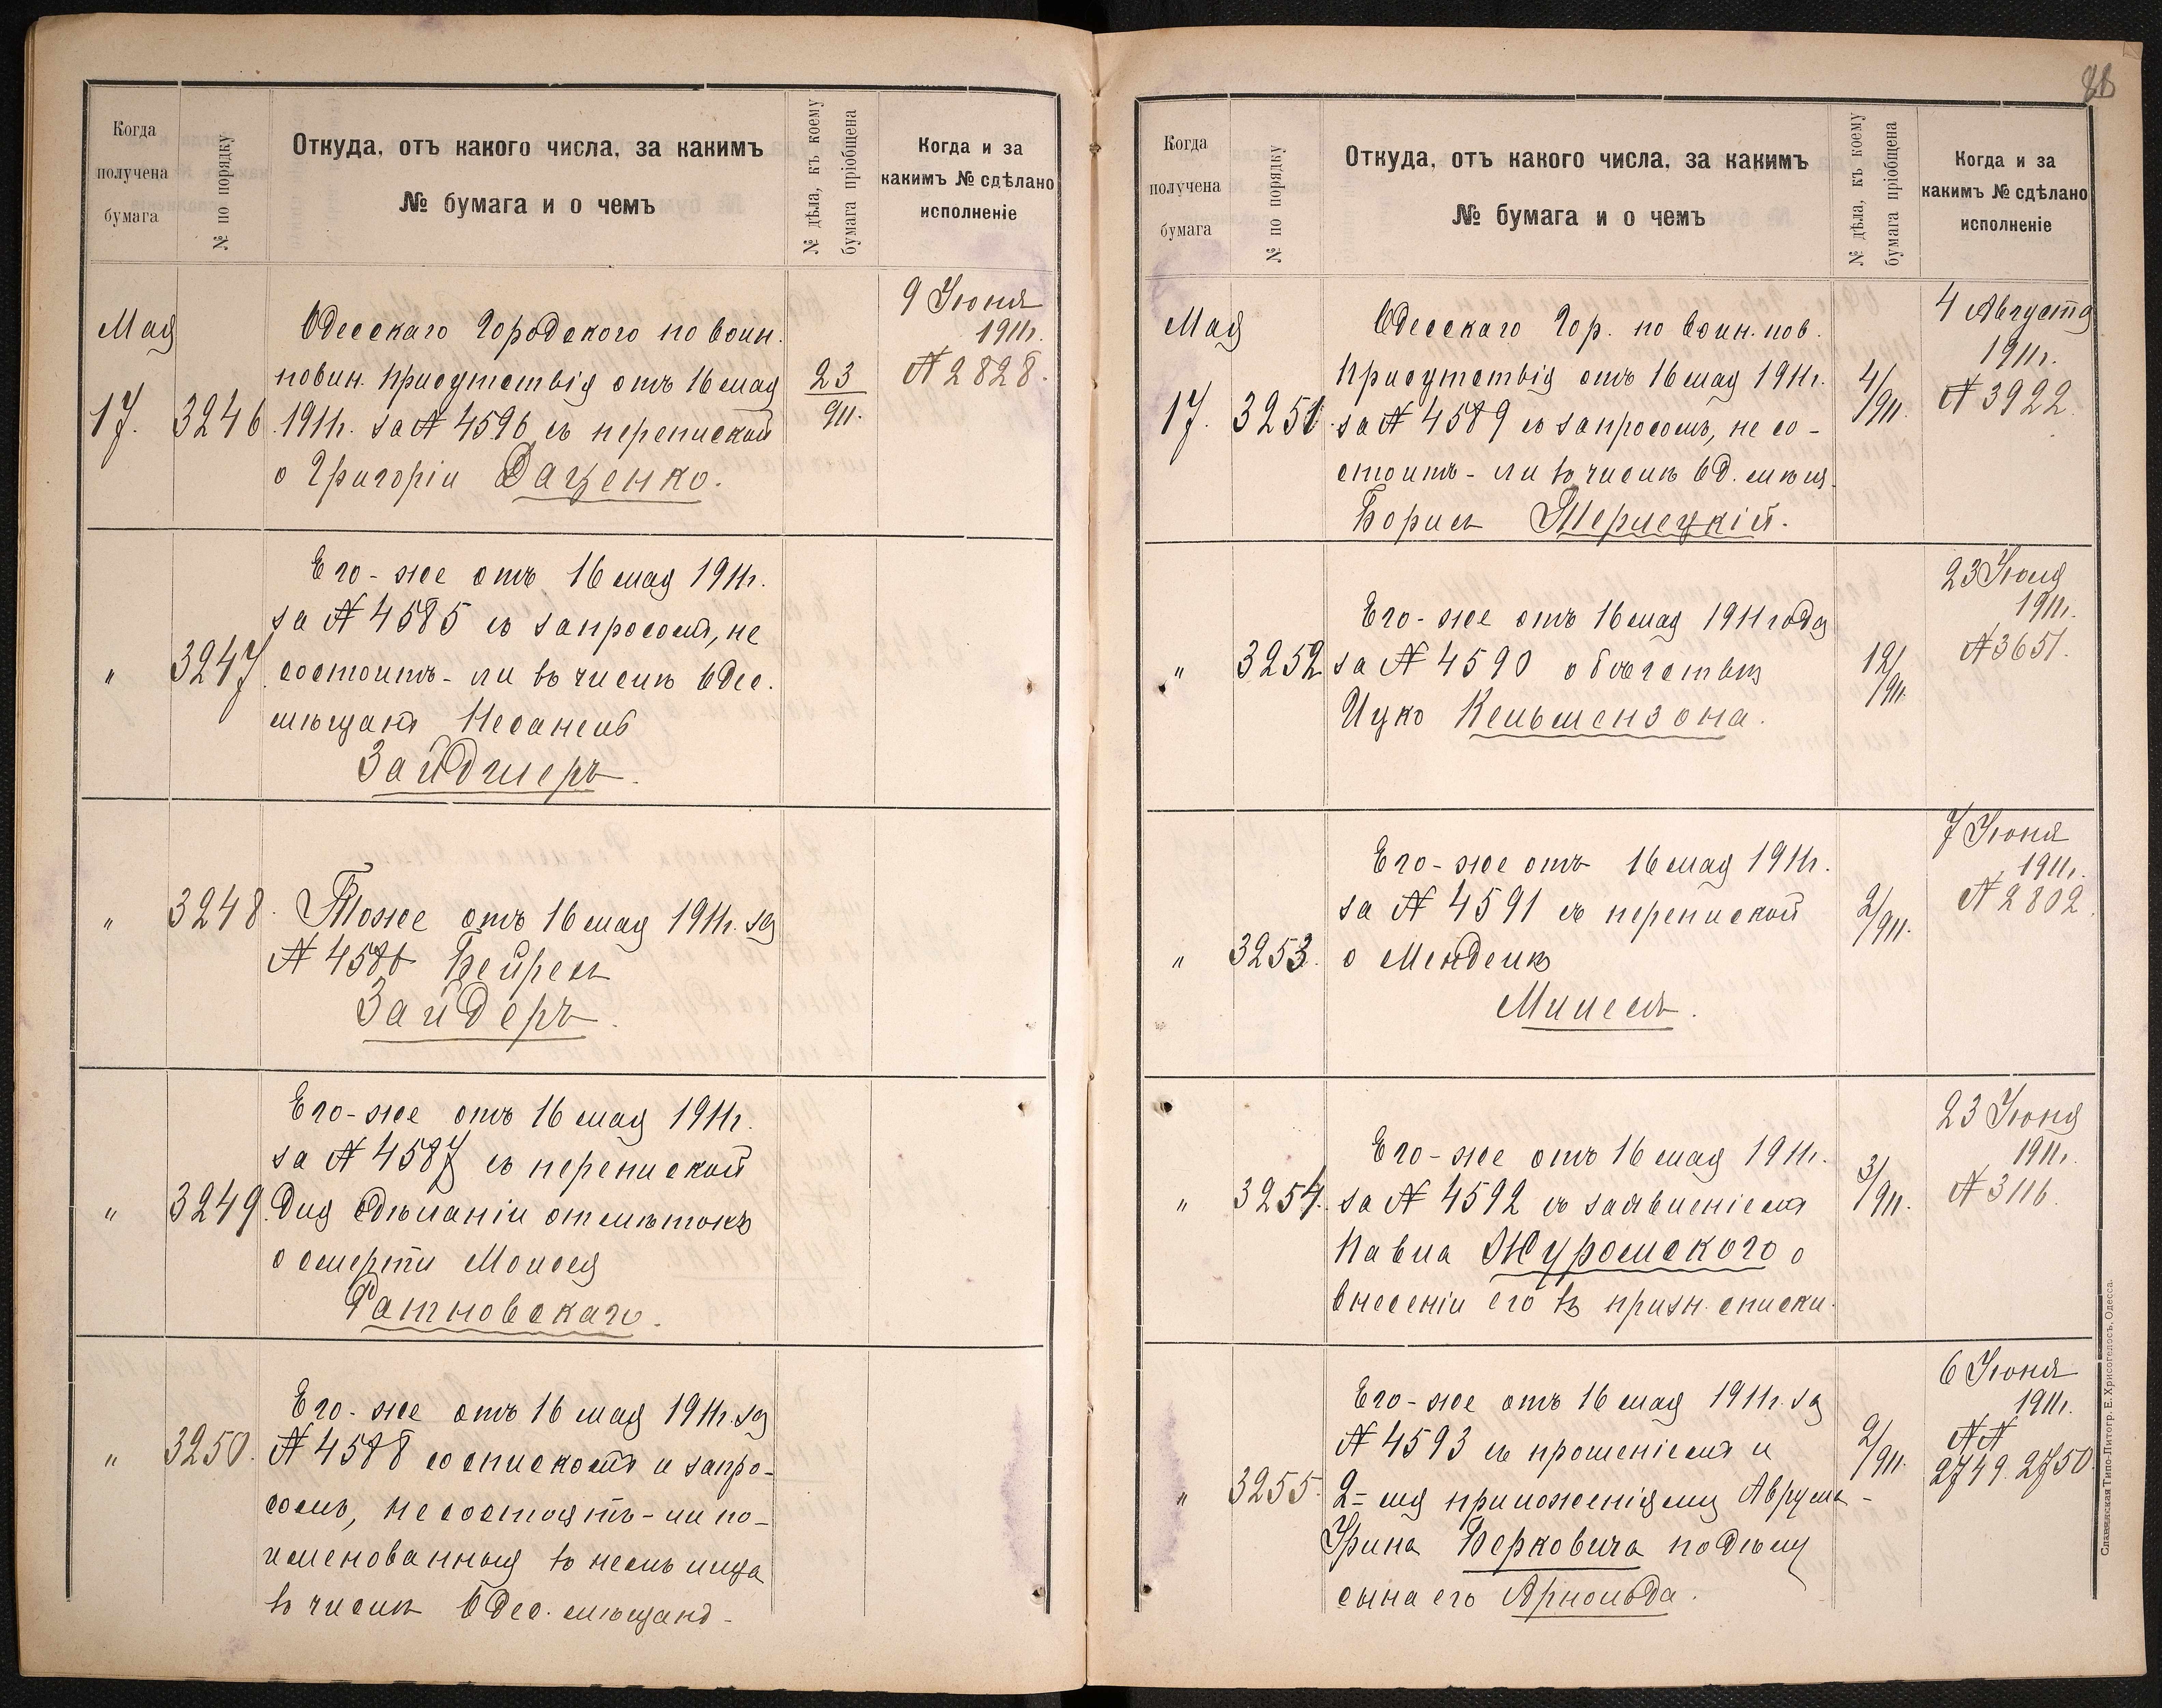 Когда
получена
бумага
№ по порядку
Откуда, отъ какого числа, за какимъ
№ бумага и о чемъ
№ дѣла, къ коему
бумага пріобщена
Когда и за
какимъ № сдѣлано
исполненіе
Мая
17.
3246.
Одесскаго Городского по воин.
повин. присутствія отъ 16 мая
1911г. за № 4596 съ перепиской
о Григоріи Даценко.
23
911.
9 Іюня
1911г.
№ 2828.
"
3247.
Его-же отъ 16 мая 1911г.
за № 4585 съ запросомъ, не
состоитъ-ли въ числѣ Одес.
мѣщанъ
"
3248.
Тоже отъ 16 мая 1911г. за
№ 4586 Бейресъ
Зайдеръ.
"
3249.
Его-же отъ 16 мая 1911г.
за № 4587 съ перепиской
для сдѣланіи отмѣтокъ
о смерти Моисея
Ратновскаго.
"
3250.
Его-же отъ 16 мая 1911г. за
№ 4588 со спискомъ и запро-
сомъ, не состоятъ-ли по-
именованныя въ немъ лица
въ числѣ Одес. мѣщанъ-
88
Когда
получена
бумага
№ по порядку
Откуда, отъ какого числа, за какимъ
№ бумага и о чемъ
№ дѣла, къ коему
бумага пріобщена
Когда и за
какимъ № сдѣлано
исполненіе
Мая
17.
3251.
Одесскаго Гор. по воин. пов.
присутствія отъ 16 мая 1911г.
за № 4589 съ запросомъ, не со-
стоитъ-ли въ числѣ Од. мѣщ.
Борисъ Терлецкій.
4/911.
4 Августа
1911г.
№ 3922.
"
3252
Его-же отъ 16 мая 1911 года
за № 4590 о бѣгствѣ
Ицко Кельмензона.
12/911.
23 Іюля
1911г.
№ 3651.
"
3253.
Его-же отъ 16 мая 1911г.
за № 4591 съ перепиской
о Менделѣ
Милесъ.
2/911.
7 Іюня
1911г.
№ 2802.
"
3254.
Его-же отъ 16 мая 1911г.
за № 4592 съ заявленіемъ
Павла Журомского о
внесеніи его въ призн. списки.
3/911.
23 Іюня
1911г.
№ 3116.
"
3255.
Его-же отъ 16 мая 1911г. за
№ 4593 съ прошеніемъ и
2=мя приложеніями Аврума-
Берковича по дѣлу
сына его Арнольда.
2/911.
6 Іюня
1911г.
№№
2749. 2750.
Славянская Типо-Литогр. Е. Хрисогелосъ, Одесса.